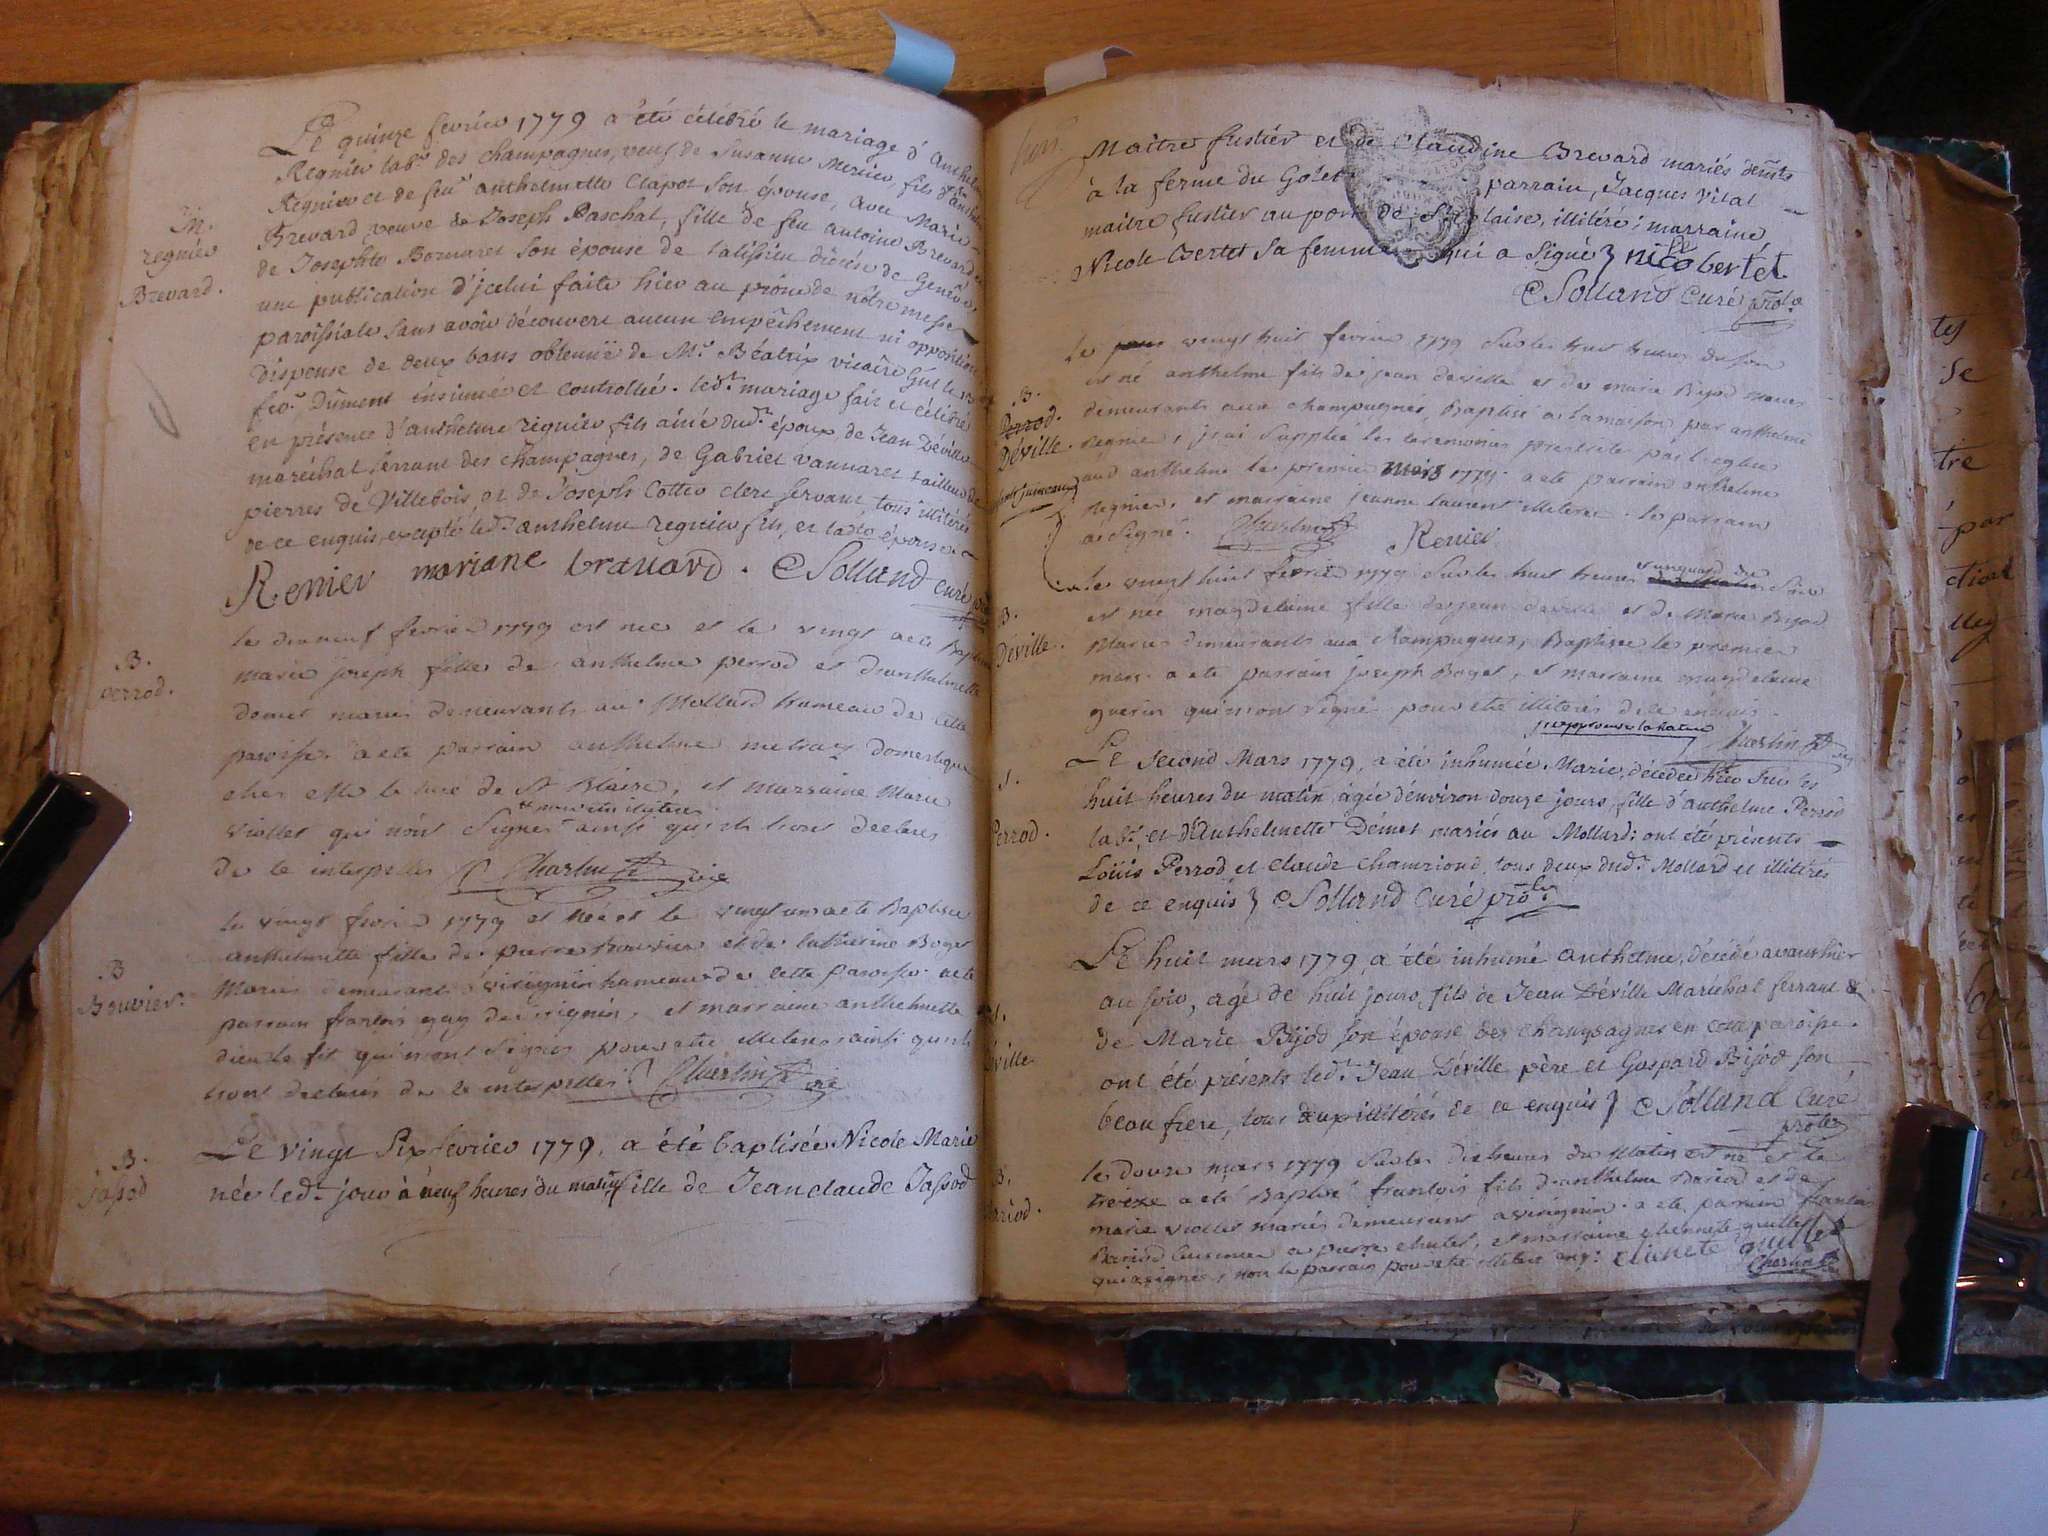 M.
regnier
Brevard.
Le quinze fevrier 1779 a été célébré le mariage d'Anthelme
Regnier labr. des champagnes, veuf de Susanne Mercier, fils d'Anthelme
Regnier et de feue anthelmette Clapot son épouse, avec Marie
Brevard veuve de Joseph Paschal, fille de feu antoine Brevard
de Josephte Bornaret son épouse de diocèse de Genêve,
une publication d'jcelui faite hier au prône de nôtre messe
paroissiale sans avoir découvert aucun empêchement ni opposition
dispense de deux bans obtenuë de Mr. Béatrix vicaire Gñl le 13
fevr. dûment insinuée et controllée. ledt. mariage fait et célébré
en présence d'anthelme regnier fils ainé dudt. époux, de Jean Déville
maréchal ferrant des champagnes, de Gabriel vannaret tailleur de
pierres de Villebois, et de Joseph Cottin clerc servant, tous illitérés
de ce enquis, excepté ledt. anthelme regnier fils, et ladte épouse.
Renier mariane bravard. CSolland curé
B.
perrod.
le dixneuf fevrier 1779 est nee et le vingt a ete Baptisée
marie joseph fille de anthelme perrod et d'anthelmette
demet mariés demeurants au Mollard hameau de cette
paroisse. a ete parrain anthelme metraz domestique
chez le cure de St Blaise, et marraine Marie
viollet qui n'ont signes ainsi qu'ils l'ont declarés
de ce interpelles Charlin vic
B
Bouvier.
le vingt fevrier 1779 est née et le vingt un a ete Baptisée
anthelmette fille de pierre Bouvier et de Catherine Boget
Mariés demeurant a virignin hameau de cette paroisse. a ete
parrain françois guy de virignin, et marraine anthelmette
dieu le fit qui n'ont signes pour etre illiteres ainsi qu'ils
l'ont declarés de ce interpelles. Charlin vic
B.
Jassod
Le vingt six fevrier 1779, a été baptisée Nicole Marie
née ledt. jour à neuf heures du matin, fille de Jeanclaude Jassod
Maitre fustier et de Claudine Brevard mariés demts
à la ferme du Golet parrain, Jacques Vital
maitre fustier au port de St blaise, illitéré; marraine
Nicole Bertet sa femme qui a signé nicole bertet
CSolland curé
B.
Perrod.
Déville.
sont jumeaux
Le vingt huit fevrier 1779 sur les huit heures du soir
est né anthelme fils de jean deville et de marie Bijod maries
demeurants aux champagnes, Baptisé a la maison par anthelme
regnier, j'ai supplée les ceremonies prescrites par l'eglise
aud anthelme le premier mars 1779. a ete parrain anthelme
regnier, et marraine jeanne laurent illiterée. le parrain
a signé. Charlin Renier
B.
Déville.
Le vingt huit fevrier 1779 sur les huit heures du soir
est née magdelaine fille de jean deville et de Marie Bijod
Mariés demeurants aux champagnes, Baptisee le premier
mars. a ete parrain joseph Boget, et marraine magdelaine
guerin qui n'ont signé pour etre illiteres de ce enquis.
j'approuve la rature Charlin
S.
Perrod.
Le second Mars 1779, a été inhumée Marie, décédée hier sur les
huit heures du matin, agée d'environ douze jours, fille d'anthelme Perrod
labr. et d'Anthelmette Démet mariés au Mollard; ont été présents
Loüis Perrod et claude chamriond, tous deux dudt. Mollard et illitérés
de ce enquis CSolland curé
S.
Déville
Le huit mars 1779, a été inhumé anthelme, décédé avanthier
au soir, agé de huit jours, fils de Jean Déville Maréchal ferrant &
de Marie Bijod son épouse des champagnes en cette paroisse.
ont été présents ledt. Jean Déville père et Gaspard Bijod son
beau frere, tous deux illitérés de ce enquis CSolland Curé
B.
Bariod.
le douze mars 1779 sur les dix heures du Matin est né et le
treize a ete Baptisé françois fils d'anthelme Bariod et de
marie viollet mariés demeurant a virignin. a ete parrain françois
Bariod a pierre chatel, et marraine etiennete guillet
qui a signé, non le parrain pour etre illiteré enq. etienete guillet
Charlin